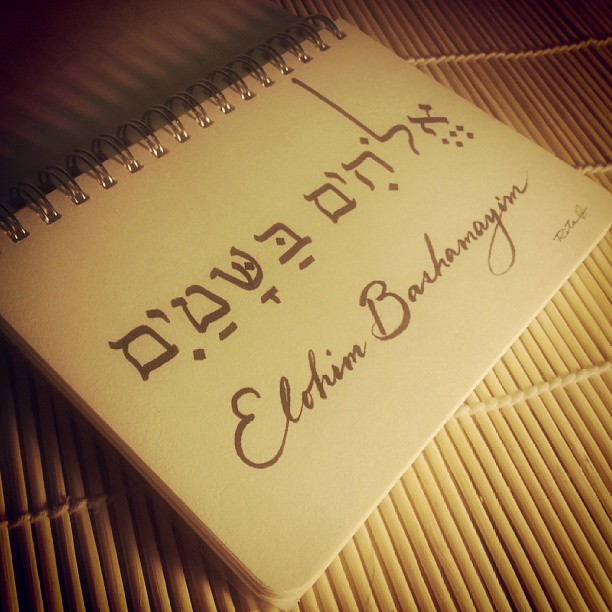 אֱלֹהִים בַּשָּׁמַיִם
Elohim Bashamayim